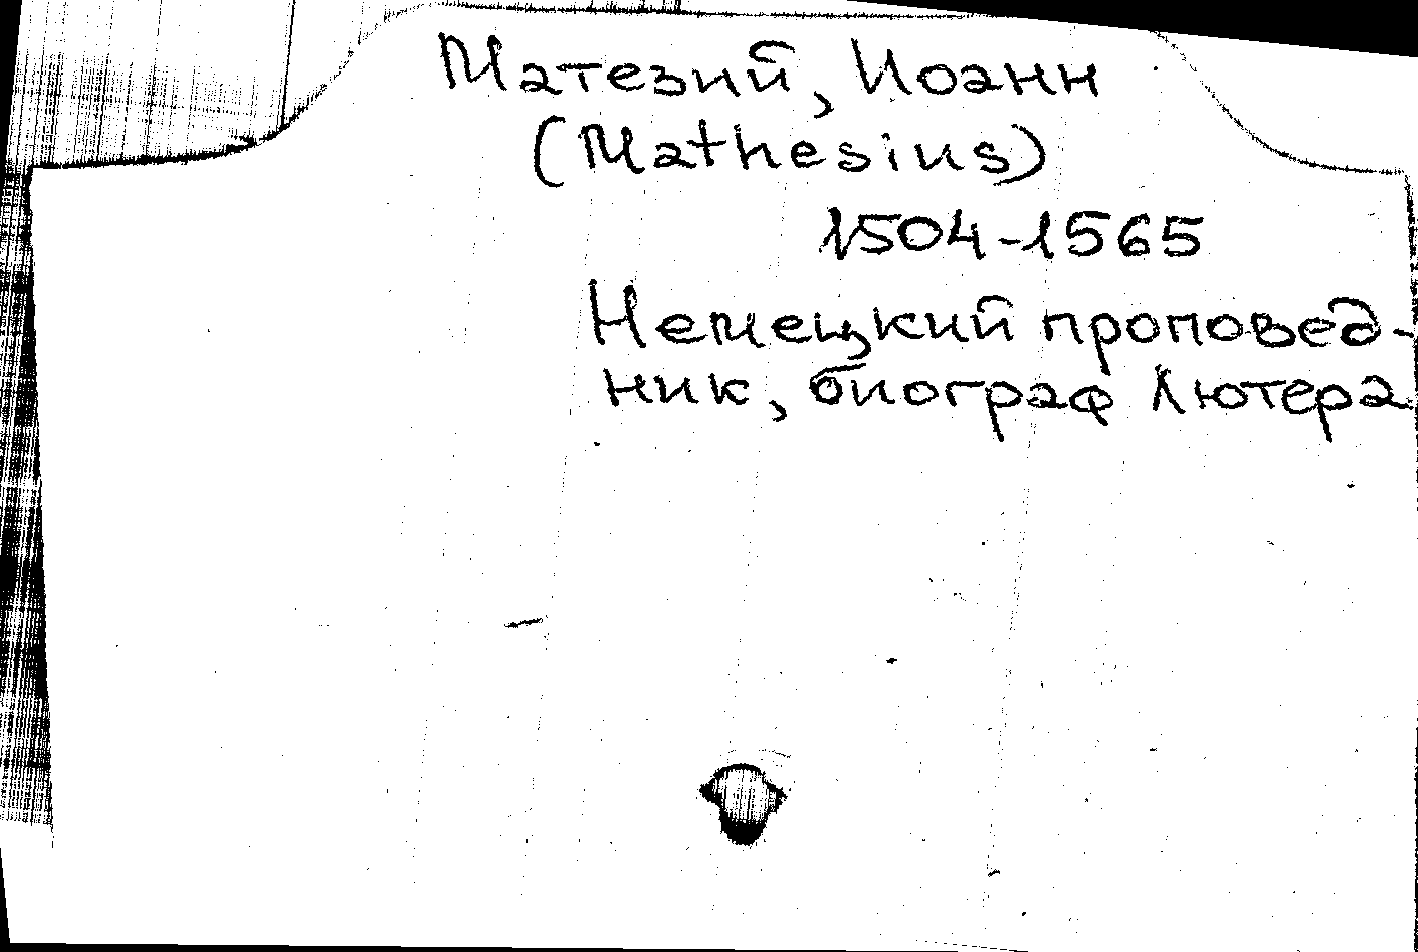 Матезий, Иоанн
(Mathesius)
1504-1565
Немецкий проповед-
ник, биограф Лютера